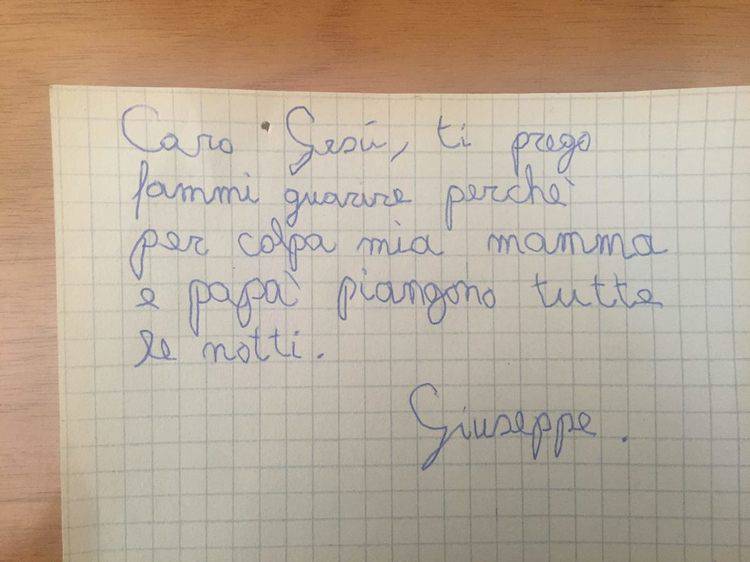 Caro Gesù, ti prego
fammi guarire perchè
per colpa mia mamma
e papà piangono tutte
le notti.
Giuseppe.